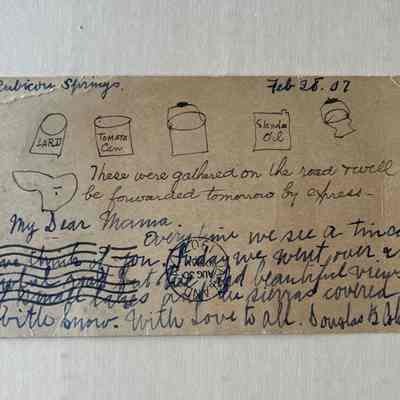 Rubicon Springs. Feb 28. 07
LARD
TOMATO
Can
Standa
Oil
These were gathered on the road & will
be forwarded tomorrow by express—
My Dear Mama.
Every time we see a tin ca
we think of you. Today we went over a
but beautiful views
lakes and the sierras covered
with snow. With love to all. Douglas